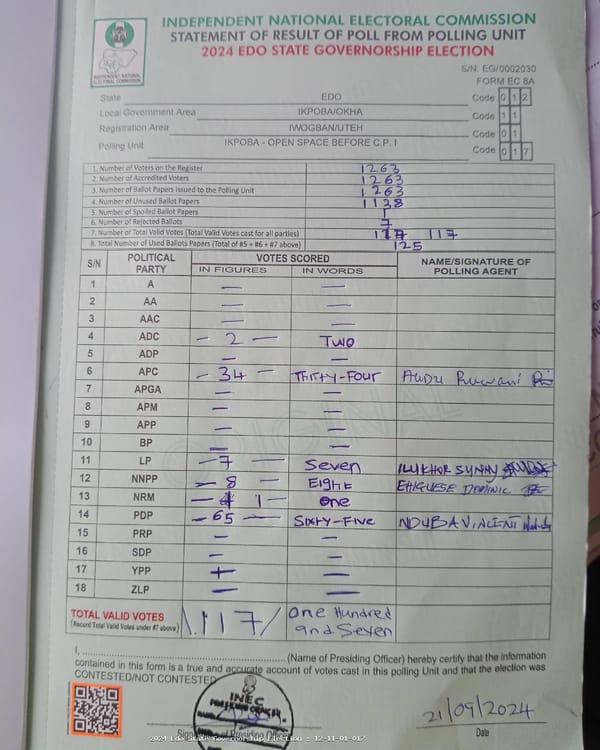 INDEPENDENT NATIONAL ELECTORAL COMMISSION
STATEMENT OF RESULT OF POLL FROM POLLING UNIT
2024 EDO STATE GOVERNORSHIP ELECTION
INEC
INDEPENDENT NATIONAL ELECTORAL COMMISSION
S/N. EG/0002030
FORM EC 8A
State EDO Code 0 1 2
Local Government Area IKPOBA/OKHA Code 1 1
Registration Area IWOGBAN/UTEH Code 0 1
Polling Unit IKPOBA - OPEN SPACE BEFORE C.P. I Code 0 1 7
1. Number of Voters on the Register 1263
2. Number of Accredited Voters 1263
3. Number of Ballot Papers Issued to the Polling Unit 1263
4. Number of Unused Ballot Papers 1138
5. Number of Spoiled Ballot Papers 1
6. Number of Rejected Ballots 7
7. Number of Total Valid Votes (Total Valid Votes cast for all parties) 117 117
8. Total Number of Used Ballots Papers (Total of #5 + #6 + #7 above) 125
S/N POLITICAL PARTY VOTES SCORED NAME/SIGNATURE OF POLLING AGENT
IN FIGURES IN WORDS
1 A — —
2 AA — —
3 AAC — —
4 ADC - 2 — Two
5 ADP — —
6 APC - 34 - Thirty-Four Audu
7 APGA — —
8 APM — —
9 APP — —
10 BP — —
11 LP - 7 — Seven SUNNY
12 NNPP - 8 - Eight EHIGUESE DOMINIC
13 NRM — 1 - one
14 PDP - 65 — Sixty-Five NDUBA VINCENT
15 PRP — —
16 SDP — —
17 YPP — —
18 ZLP — —
TOTAL VALID VOTES 117/ One Hundred and Seven
(Record Total Valid Votes under #7 above)
I, (Name of Presiding Officer) hereby certify that the information
contained in this form is a true and accurate account of votes cast in this polling Unit and that the election was
CONTESTED/NOT CONTESTED
INEC
PRESIDING OFFICER
Signature of Presiding Officer
21/09/2024
Date
2024 Edo State Governorship Election - 12-11-01-017
ORIGINAL